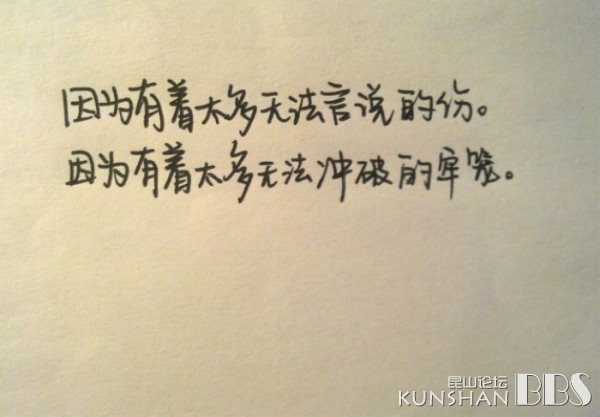 因为有着太多无法言说的伤。
因为有着太多无法冲破的牢笼。
昆山论坛
KUNSHAN BBS